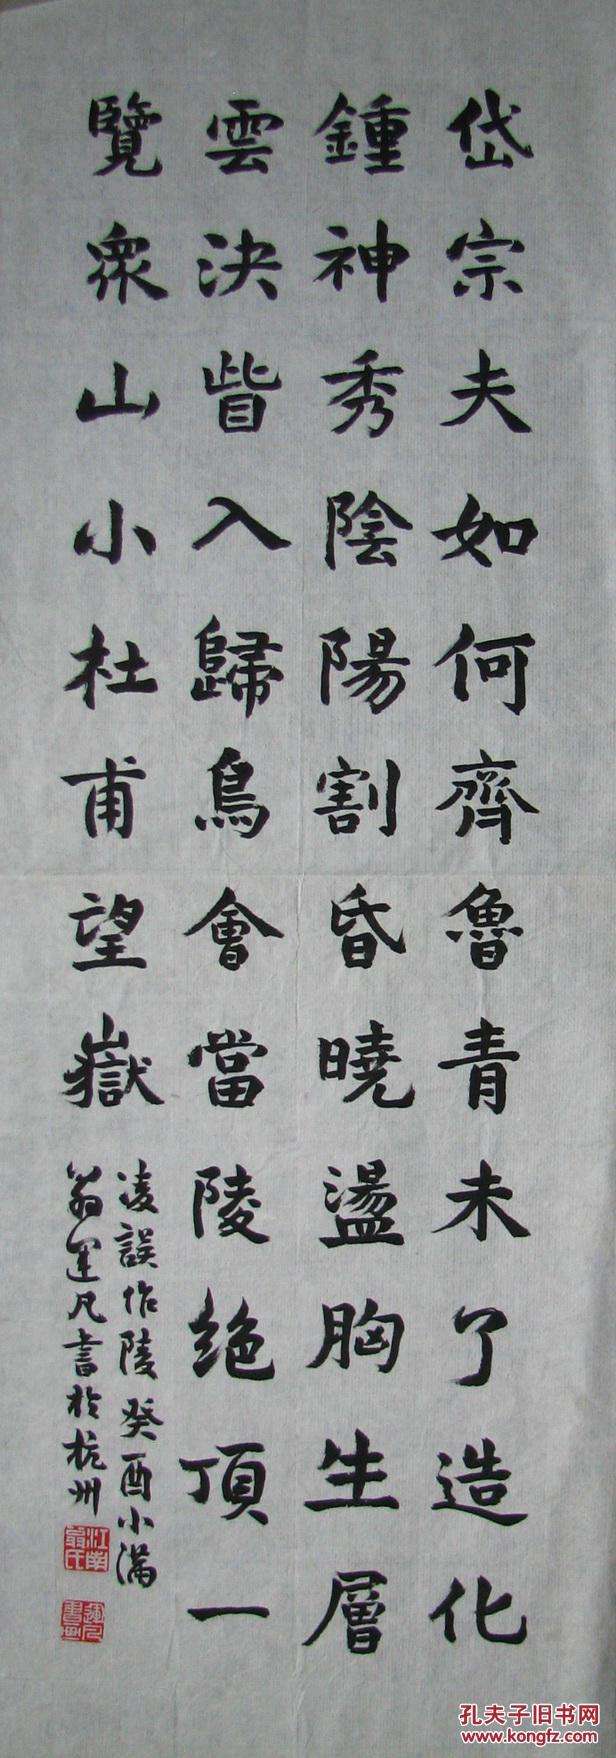 岱宗夫如何齊魯青未了造化
鍾神秀陰陽割昏曉盪胸生層
雲決眥入歸鳥會當陵绝頂一
覽衆山小杜甫望嶽
凌誤作陵癸酉小滿
翁運凡書於杭州
江南翁氏
運凡書画
孔夫子旧书网
www.kongfz.com